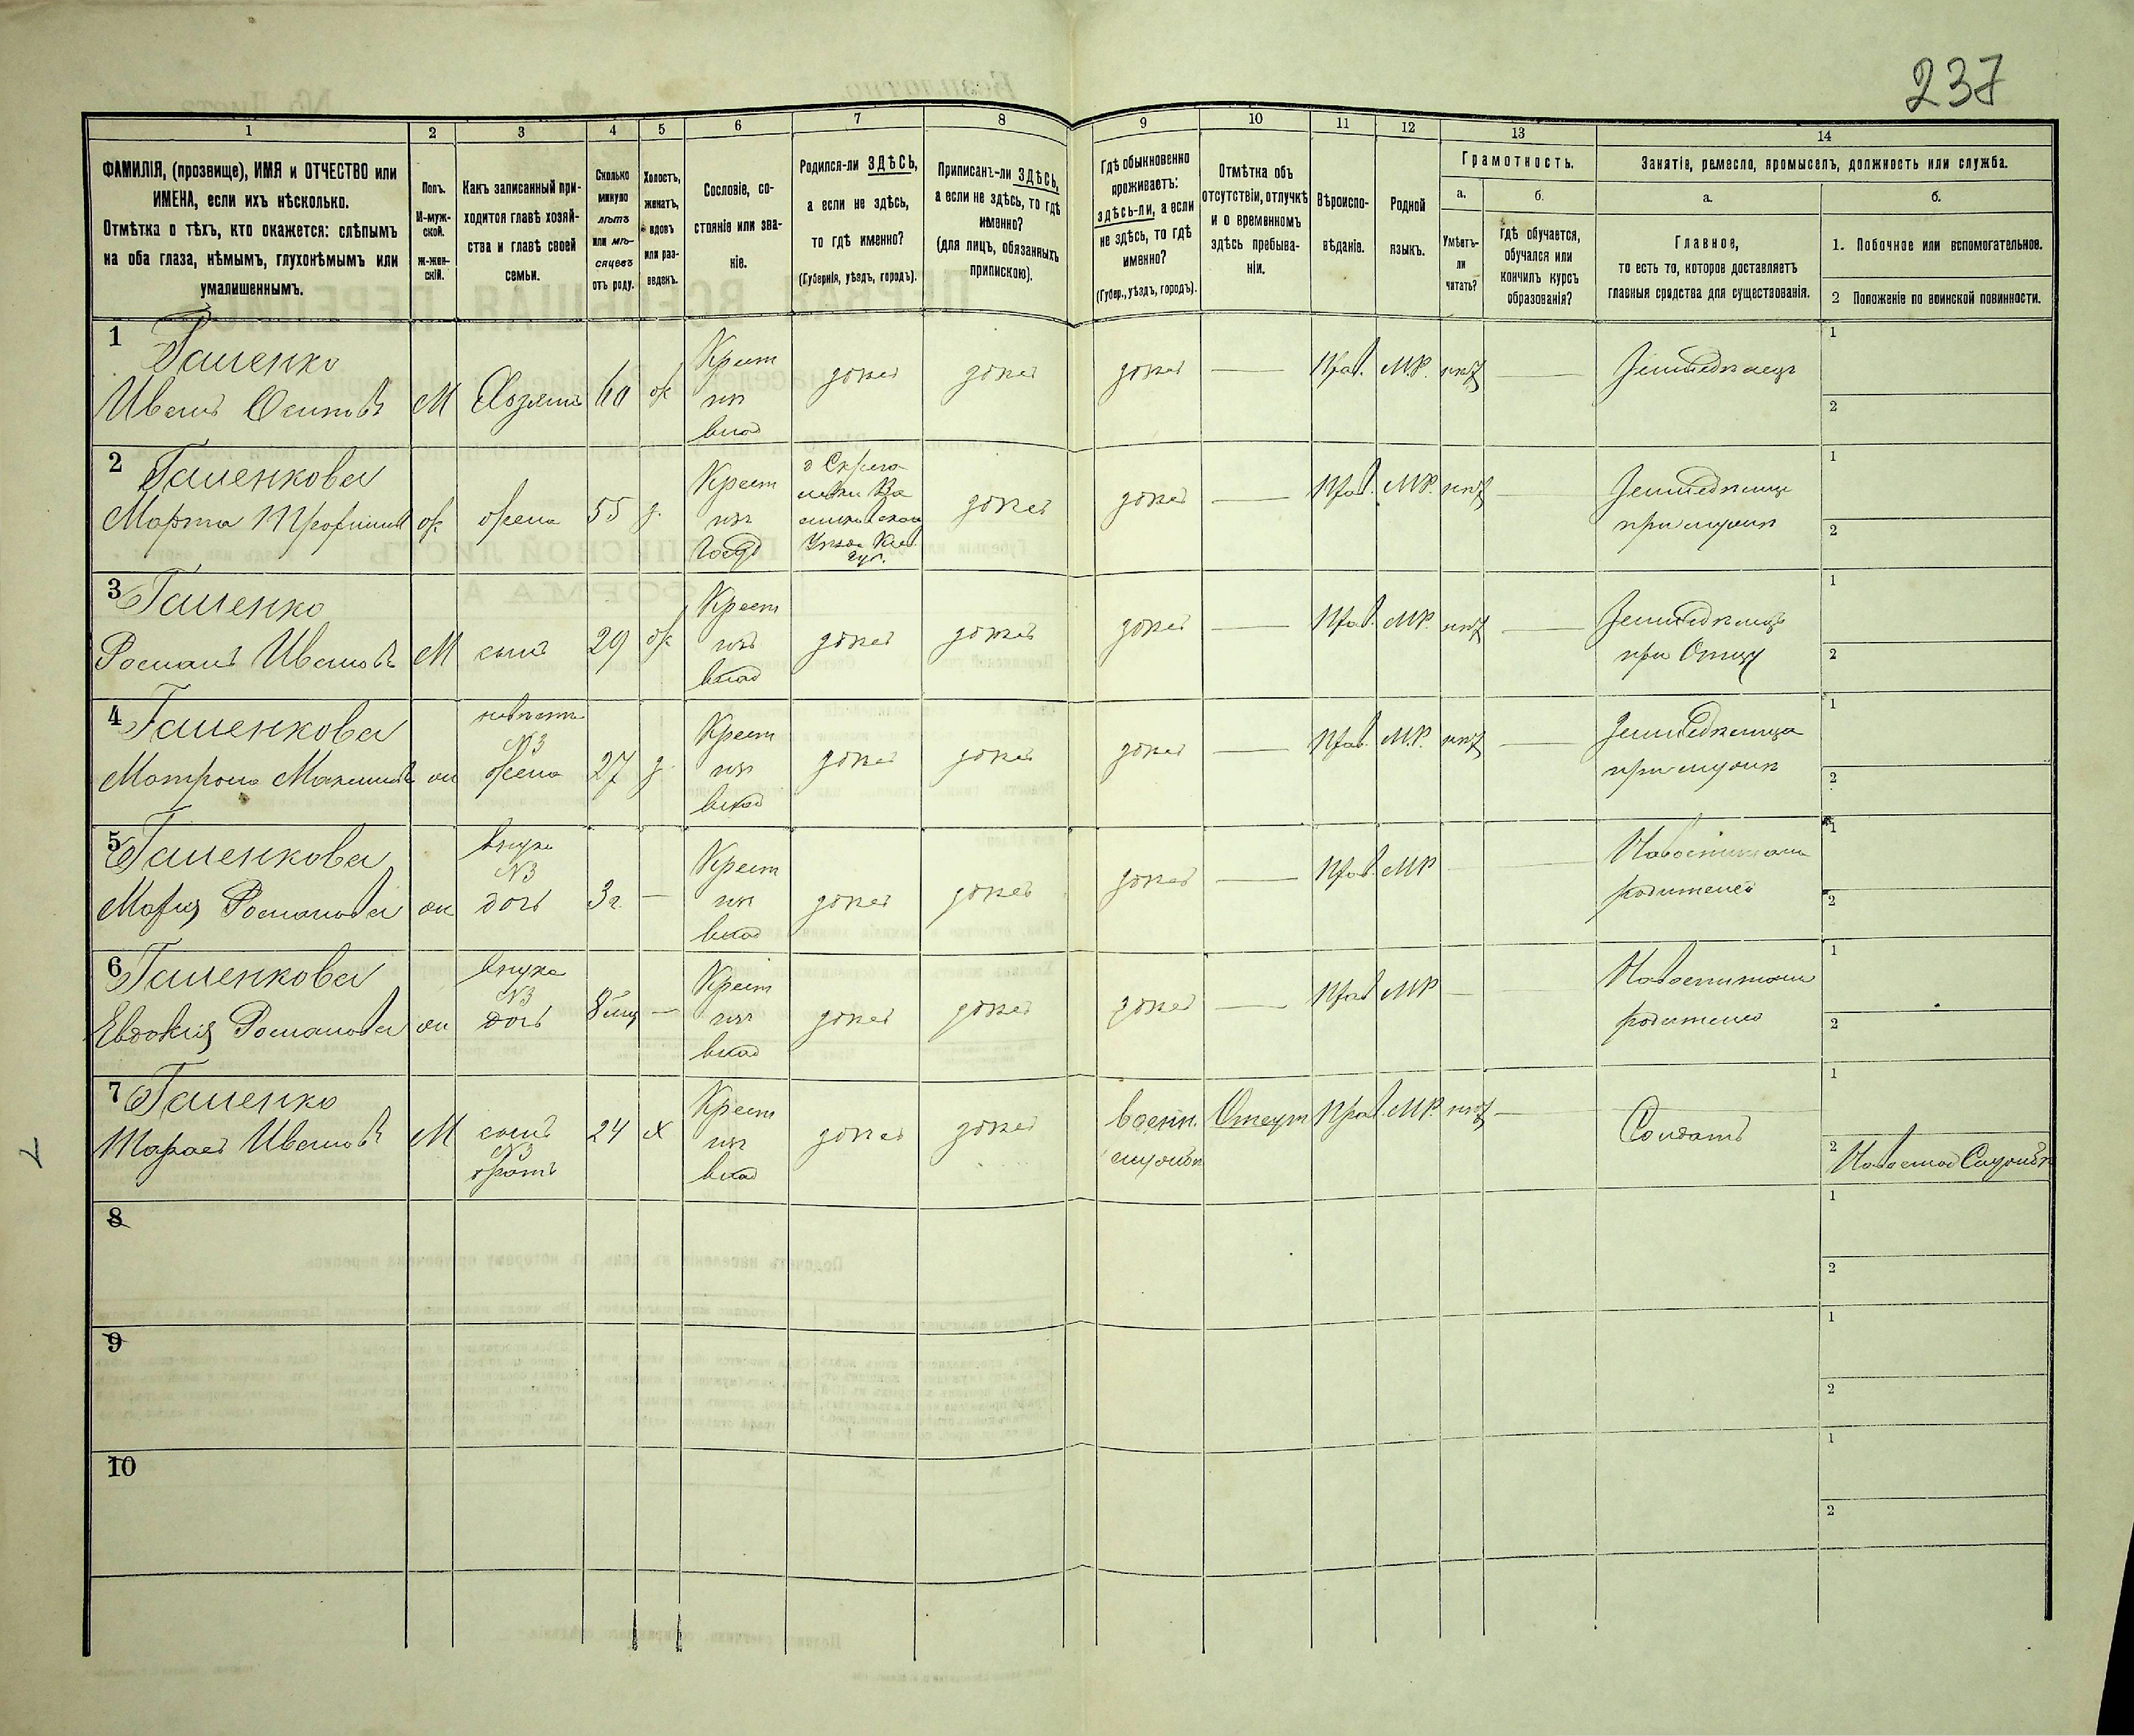 237
1 2 3 4 5 6 7 8 9 10 11 12 13 14
ФАМИЛІЯ, (прозвище), ИМЯ и ОТЧЕСТВО или
ИМЕНА, если ихъ нѣсколько.
Отмѣтка о тѣхъ, кто окажется: слѣпымъ
на оба глаза, нѣмымъ, глухонѣмымъ или
умалишеннымъ.
Полъ.
М-муж-
ской.
ж-жен-
скій.
Какъ записанный при-
ходится главѣ хозяй-
ства и главѣ своей
семьи.
Сколько
минуло
лѣтъ
или мѣ-
сяцевъ
отъ роду.
Холостъ,
женатъ,
вдовъ
или раз-
веденъ.
Сословіе, со-
стояніе или зва-
ніе.
Родился-ли ЗДѢСЬ,
а если не здѣсь,
то гдѣ именно?
(Губернія, уѣздъ, городъ).
Приписанъ-ли ЗДѢСЬ,
а если не здѣсь, то гдѣ
именно?
(для лицъ, обязанныхъ
припискою).
Гдѣ обыкновенно
проживаетъ:
здѣсь-ли, а если
не здѣсь, то гдѣ
именно?
(Губер., уѣздъ, городъ).
Отмѣтка объ
отсутствіи, отлучкѣ
и о временномъ
здѣсь пребыва-
ніи.
Вѣроиспо-
вѣданіе.
Родной
языкъ.
Грамотность.
а.
Умѣетъ-
ли
читать?
б.
Гдѣ обучается,
обучался или
кончилъ курсъ
образованія?
Занятіе, ремесло, промыселъ, должность или служба.
а.
Главное,
то есть то, которое доставляетъ
главныя средства для существованія.
б.
1. Побочное или вспомогательное.
2 Положеніе по воинской повинности.
1
Гаценко
Иванъ Осиповъ М Хозяинъ 60 ж
Крест
изъ
влад
здѣсь здѣсь здѣсь — Прав. М.Р. нѣтъ —
Земледелецъ
1
2
2
Гаценкова
Марта Трофимов ж жена 55 з.
Крест
изъ
Госуд
здѣсь здѣсь — Прав. М.Р. нѣтъ —
Земледелица
при мужѣ
1
2
3
Гаценко
Романъ Ивановъ М сынъ 29 ж
Крест
изъ
влад
здѣсь здѣсь здѣсь — Прав. М.Р. нѣтъ —
Земледелецъ
при Отцу
1
2
4
Гаценкова
Матрона Максимов ж
невѣстк
N3
жена
27 з
Крест
изъ
влад
здѣсь здѣсь здѣсь — Прав. М.Р. нѣтъ —
Земледелица
при мужѣ
1
2
5
Гаценкова
Марія Романова ж
внука
N3
дочь
3 г. —
Крест
изъ
влад
здѣсь здѣсь здѣсь — Прав. МР
На воспитани
родителей
1
2
6
Гаценкова
Евдокія Романова ж
внука
N3
дочь
8 мц —
Крест
изъ
влад
здѣсь здѣсь здѣсь — Прав МР — —
На воспитани
родителей
1
2
7
Гаценко
Тарасъ Ивановъ М
сынъ
N3
братъ
24 х
Крест
изъ
влад
здѣсь здѣсь
воен.
службѣ
Отсут Прав. МР. нѣтъ —
Солдатъ
1
2
На военой Службѣ
8
1
2
9
1
2
10
1
2